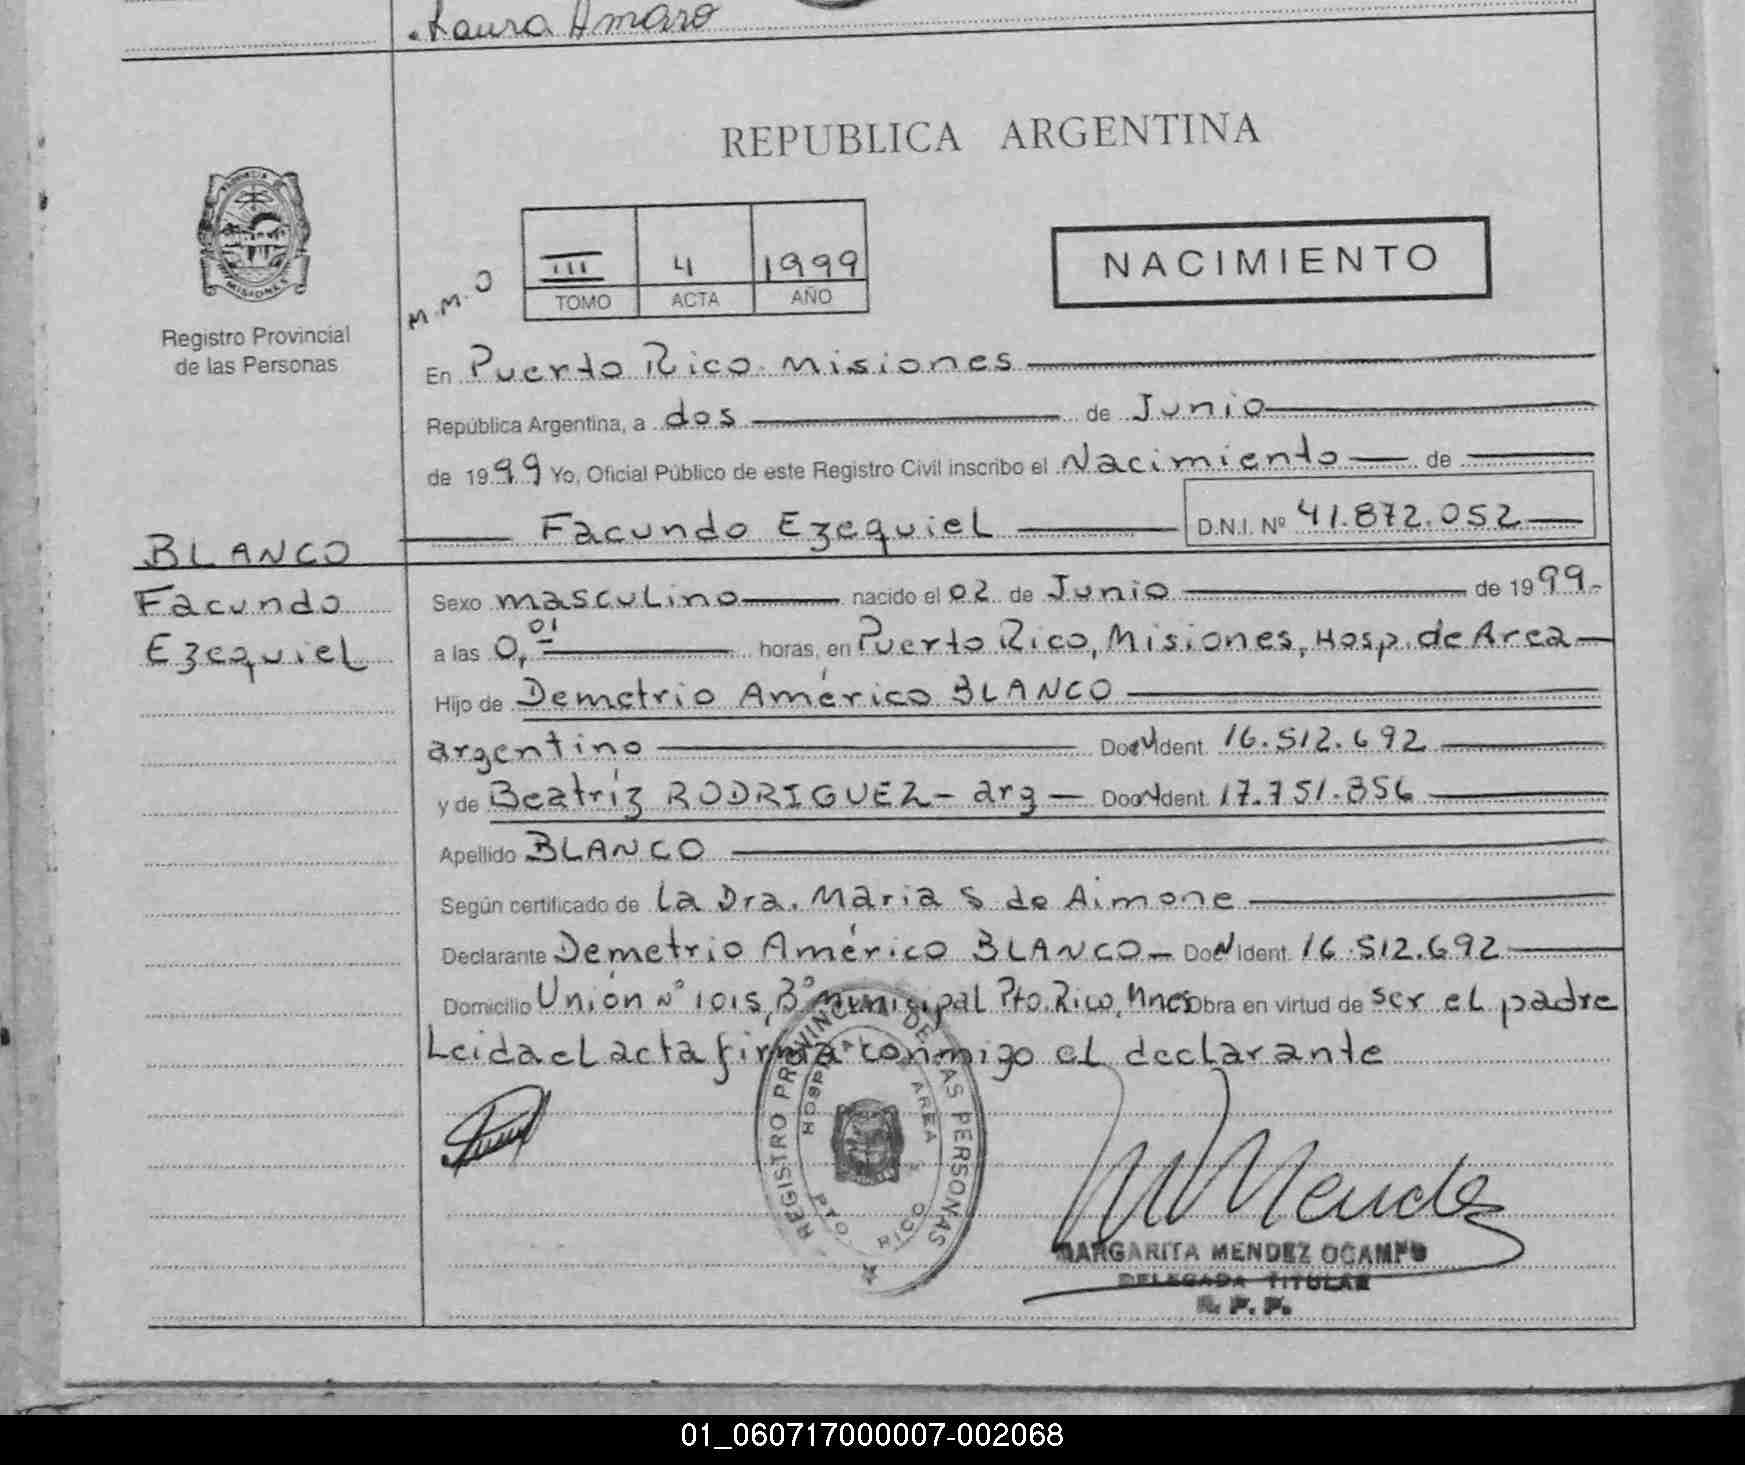 Laura Amaro
REPUBLICA ARGENTINA
PROVINCIA DE
MISIONES
Registro Provincial
de las Personas
M.M.O
III 4 1999
TOMO ACTA AÑO
NACIMIENTO
En Puerto Rico Misiones
República Argentina, a dos de Junio
de 1999 Yo, Oficial Público de este Registro Civil inscribo el Nacimiento de
Facundo Ezequiel D.N.I. Nº 41.872.052
BLANCO
Facundo
Ezequiel
Sexo masculino nacido el 02 de Junio de 1999-
a las 0,01 horas, en Puerto Rico, Misiones, Hosp. de Area
Hijo de Demetrio Américo BLANCO
argentino Doc. Ident. 16.512.692
y de Beatríz RODRIGUEZ - arg - Doc. Ident. 17.751.856
Apellido BLANCO
Según certificado de la Dra. Maria S de Aimone
Declarante Demetrio Américo BLANCO - Doc. Ident. 16.512.692
Domicilio Unión Nº 1015, Bº Municipal Pto. Rico, Mnes Obra en virtud de ser el padre
Leida el acta firma conmigo el declarante
REGISTRO PROVINCIAL DE LAS PERSONAS
HOSPITAL DE AREA
PTO RICO
M Mendez
MARGARITA MENDEZ OCAMPO
DELEGADA TITULAR
R. P. P.
01_060717000007-002068